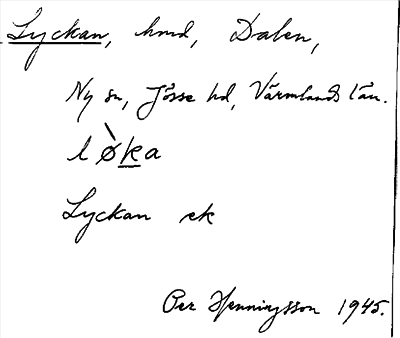 Lyckan, hmd, Dalen,
Ny sn, Jösse hd, Värmlands län.
lø̀ka
Lyckan ek
Per Henningsson 1945.